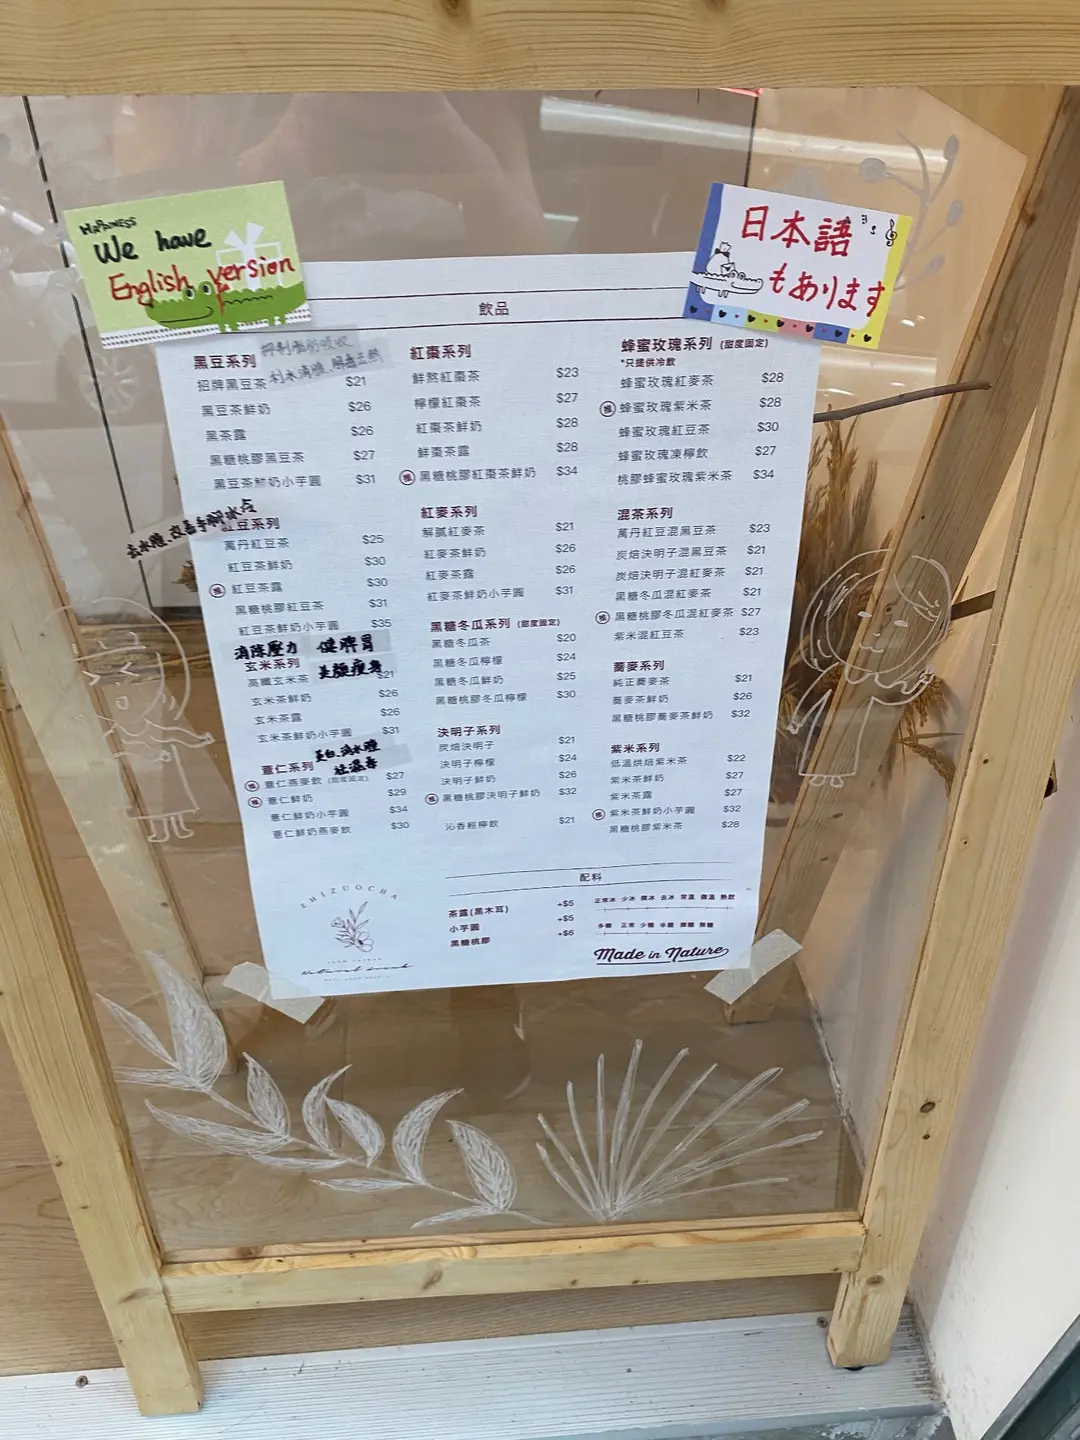 HAPPINESS
We have
English version
日本語
もあります
飲品
黑豆系列
利水消腫、解毒
招牌黑豆茶 $21
黑豆茶鮮奶 $26
黑茶露 $26
黑糖桃膠黑豆茶 $27
黑豆茶鮮奶小芋圓 $31
去水腫、改善手腳冰冷
紅豆系列
萬丹紅豆茶 $25
紅豆茶鮮奶 $30
推 紅豆茶露 $30
黑糖桃膠紅豆茶 $31
紅豆茶鮮奶小芋圓 $35
消除壓力 健脾胃
美顏瘦身
玄米系列
高纖玄米茶 $21
玄米茶鮮奶 $26
玄米茶露 $26
玄米茶鮮奶小芋圓 $31
美白、消水腫
祛濕毒
薏仁系列
推 薏仁燕麥飲 (甜度固定) $27
推 薏仁鮮奶 $29
薏仁鮮奶小芋圓 $34
薏仁鮮奶燕麥飲 $30
紅棗系列
鮮熬紅棗茶 $23
檸檬紅棗茶 $27
紅棗茶鮮奶 $28
鮮棗茶露 $28
推 黑糖桃膠紅棗茶鮮奶 $34
紅麥系列
解膩紅麥茶 $21
紅麥茶鮮奶 $26
紅麥茶露 $26
紅麥茶鮮奶小芋圓 $31
黑糖冬瓜系列 (甜度固定)
黑糖冬瓜茶 $20
黑糖冬瓜檸檬 $24
黑糖冬瓜鮮奶 $25
黑糖桃膠冬瓜檸檬 $30
決明子系列
炭焙決明子 $21
決明子檸檬 $24
決明子鮮奶 $26
推 黑糖桃膠決明子鮮奶 $32
沁香輕檸飲 $21
蜂蜜玫瑰系列 (甜度固定)
*只提供冷飲
蜂蜜玫瑰紅麥茶 $28
推 蜂蜜玫瑰紫米茶 $28
蜂蜜玫瑰紅豆茶 $30
蜂蜜玫瑰凍檸飲 $27
桃膠蜂蜜玫瑰紫米茶 $34
混茶系列
萬丹紅豆混黑豆茶 $23
炭焙決明子混黑豆茶 $21
炭焙決明子混紅麥茶 $21
黑糖冬瓜混紅麥茶 $21
推 黑糖桃膠冬瓜混紅麥茶 $27
紫米混紅豆茶 $23
蕎麥系列
純正蕎麥茶 $21
蕎麥茶鮮奶 $26
黑糖桃膠蕎麥茶鮮奶 $32
紫米系列
低溫烘焙紫米茶 $22
紫米茶鮮奶 $27
紫米茶露 $27
推 紫米茶鮮奶小芋圓 $32
黑糖桃膠紫米茶 $28
配料
茶露(黑木耳) +$5
小芋圓 +$5
黑糖桃膠 +$6
正常冰 少冰 微冰 去冰 常溫 微溫 熱飲
多糖 正常 少糖 半糖 微糖 無糖
Made in Nature
ZHIZUOCHA
Natural drink